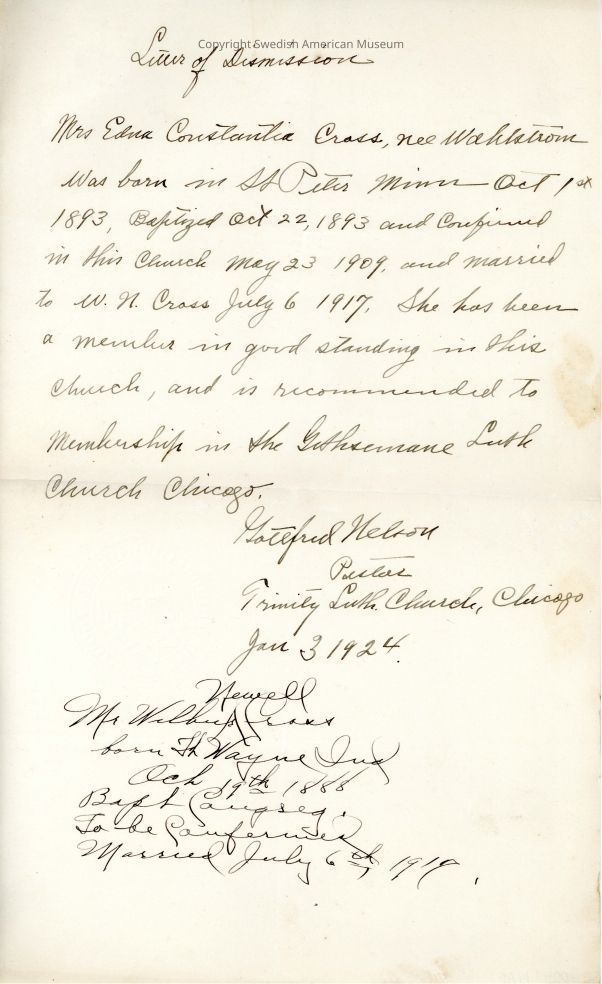 Copyright Swedish American Museum
Letter of Dismission
Mrs Edna Constantia Cross, nee Wahlstrom
was born in St Peter Minn Oct 1st
1893, Baptized Oct 22, 1893 and Confirmed
in this Church May 23 1909, and married
to W. N. Cross July 6 1917. She has been
a member in good standing in this
church, and is recommended to
Membership in the Gethsemane Luth
Church Chicago.
Gottfrid Nelson
Pastor
Trinity Luth. Church, Chicago
Jan 3 1924.
Newell
Mr Wilbur Cross
born Ft Wayne Ind
Oct 19th 1888
Bapt Congreg.
To be Confermed
Married July 6th, 1917.